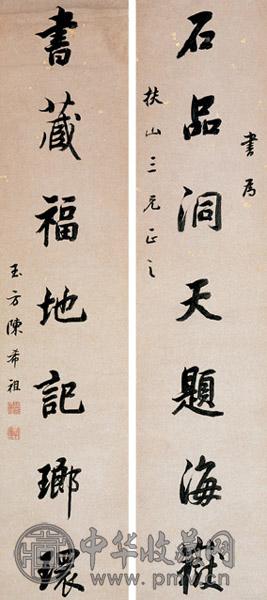 書為
石品洞天題海嶽
扶山三兄正之
書藏福地記瑯環
玉方陳希祖
中华收藏网